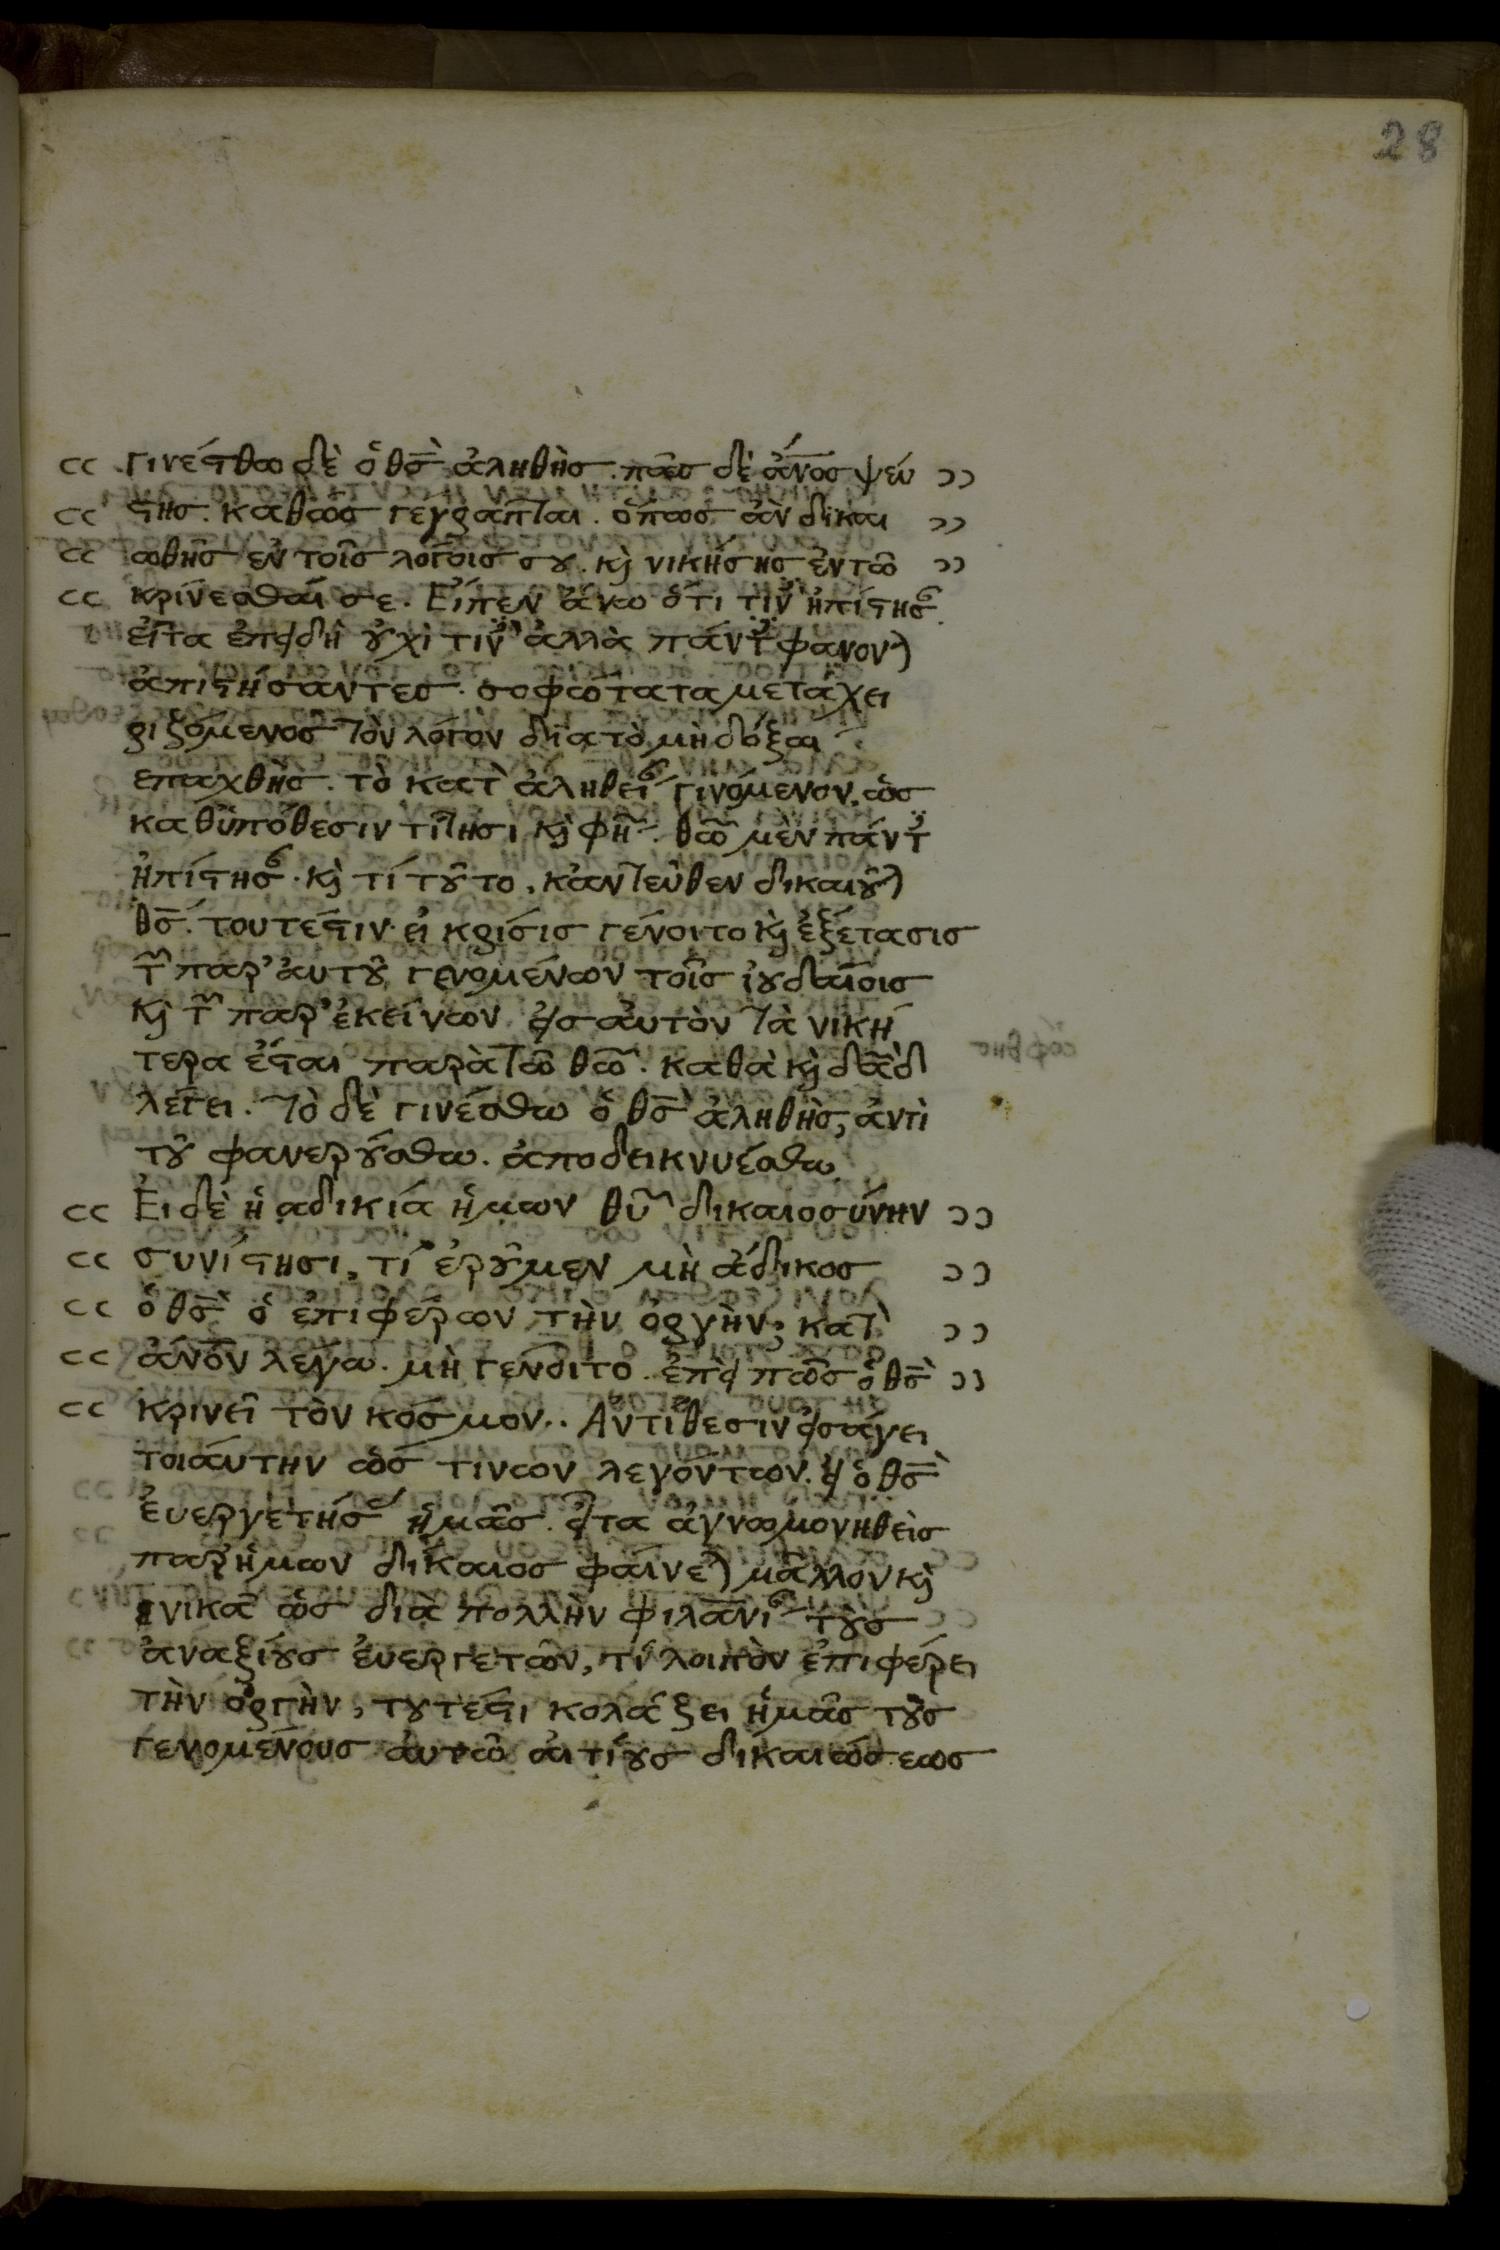 28
γινέσθω δὲ ὁ θς ἀληθὴς. πᾶς δὲ ἄνος ψεύ
στης. καθὼς γέγραπται. ὅπως ἂν δικαι
ωθῆς ἐν τοῖς λόγοις σου. καὶ νικήσης ἐν τῶ
κρίνεσθαί σε. Εἶπεν ἄνω ὅτι τινὲς ἠπίστησαν.
εἶτα ἐπειδὴ οὐχὶ τινὲς ἀλλὰ πάντες φαίνονται
ἀπιστήσαντες. σοφώτατα μεταχει
ριζόμενος τὸν λόγον διὰ τὸ μὴ δόξαι
ἐπαχθὴς. τὸ κατ' ἀλήθειαν γινόμενον, ὡς
καθ' ὑπόθεσιν τίθησι καὶ φησι. θῶ μὲν πάντες
ἠπίστησαν. καὶ τί τοῦτο, κἀντεῦθεν δικαιοῦται
θς. τουτέστιν. εἰ κρίσις γένοιτο καὶ ἐξέτασις
τῶν παρ' αὐτοῦ γενομένων τοῖς ἰουδαίοις
καὶ τῶν παρ' ἐκείνων εἰς αὐτὸν τὰ νικη
τερα ἔσται παρὰ τῶ θῶ. καθὰ καὶ δαδ
λέγει. τὸ δὲ γινέσθω ὁ θς ἀληθὴς, ἀντὶ
τοῦ φανερούσθω. ἀποδεικνυέσθω
Εἰ δὲ ἡ ἀδικία ἡμῶν θυ δικαιοσύνην
συνίστησι, τί ἐροῦμεν μὴ ἄδικος
ὁ θς ὁ ἐπιφέρων τὴν ὀργὴν; κατὰ
ἄνον λέγω. μὴ γένοιτο. ἐπεὶ πῶς ὁ θς
κρινεῖ τὸν κόσμον.. Ἀντίθεσιν εἰσάγει
τοιαύτην ὥς τινων λεγόντων. εἰ ὁ θς
εὐεργετήσας ἡμᾶς. εἶτα ἀγνωμονηθεὶς
παρ' ἡμῶν δίκαιος φαίνεται μᾶλλον καὶ
ἐνικᾶ ὡς διὰ πολλὴν φιλανίαν τοὺς
ἀναξίους εὐεργετῶν, τί λοιπὸν ἐπιφέρει
τὴν ὀργὴν, τουτέστι κολάζει ἡμᾶς τοὺς
γενομένους αὐτῶ αἰτίους δικαιώσεως